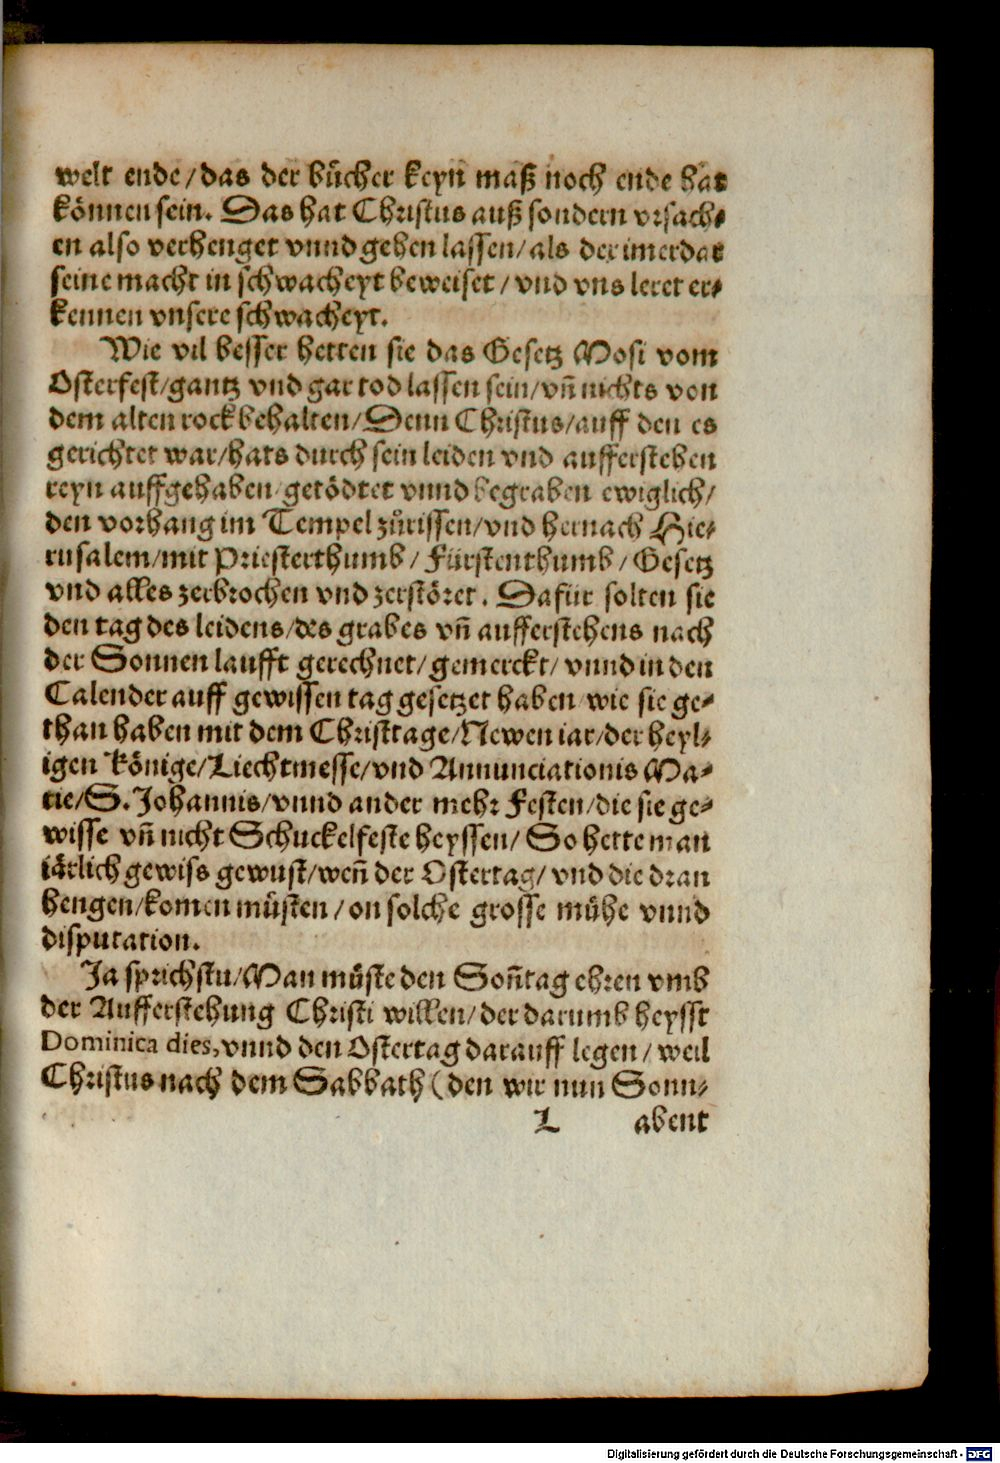 welt ende/das der bücher keyn maß noch ende hat
können sein. Das hat Christus auß sondern vrsach-
en also verhenget vnnd gehen lassen/als der imerdar
seine macht in schwacheyt beweiset/vnd vns leret er-
kennen vnsere schwacheyt.
Wie vil besser hetten sie das Gesetz Mosi vom
Osterfest/gantz vnd gar tod lassen sein/vn̄ nichts von
dem alten rock behalten/Denn Christus/auff den es
gerichtet war/hats durch sein leiden vnd aufferstehen
reyn auffgehaben getödtet vnnd begraben ewiglich/
den vorhang im Tempel zůrissen/vnd hernach Hie-
rusalem/mit Priesterthumb/Fürstenthumb/Gesetz
vnd alles zerbrochen vnd zerstöret. Dafür solten sie
den tag des leidens/des grabes vn̄ aufferstehens nach
der Sonnen laufft gerechnet/gemerckt/vnnd in den
Calender auff gewissen tag gesetzet haben wie sie ge-
than haben mit dem Christtage/Newen iar/der heyl-
igen Könige/Liechtmesse/vnd Annunciationis Ma-
rie/S. Johannis/vnnd ander mehr Festen/die sie ge-
wisse vn̄ nicht Schuckelfeste heyssen/So hette man
iärlich gewiss gewust/wen̄ der Ostertag/vnd die dran
hengen/komen müsten/on solche grosse mühe vnnd
disputation.
Ja sprichstu/Man müste den Son̄tag ehren vmb
der Aufferstehung Christi willen/der darumb heysst
Dominica dies, vnnd den Ostertag darauff legen/weil
Christus nach dem Sabbath (den wir nun Sonn-
L abent
Digitalisierung gefördert durch die Deutsche Forschungsgemeinschaft - DFG